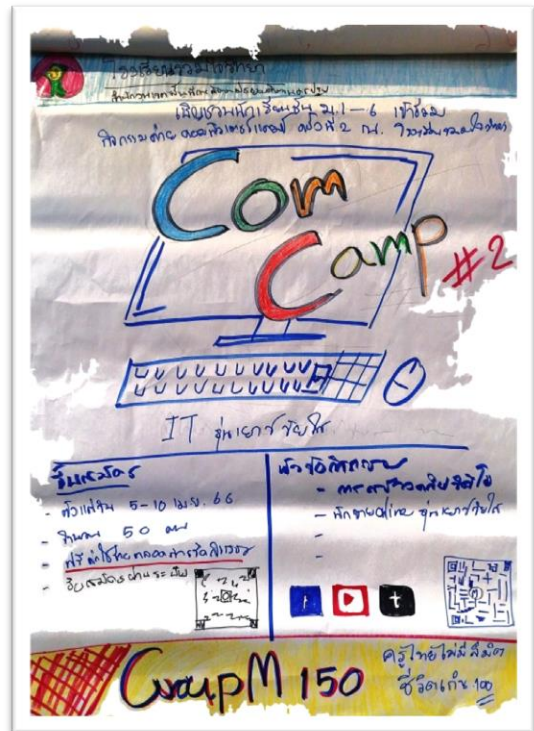 โรงเรียนรวมใจวิทยา
เชิญชวนนักเรียนชั้น ม.1-6 เข้าร่วม
กิจกรรมค่าย คอมพิวเตอร์แคมป์ ครั้งที่ 2 ณ. โรงเรียนรวมใจวิทยา
Com
Camp
#2
IT รุ่นเยาว์วัยใส
รับสมัคร
- ตั้งแต่วัน 5-10 เม.ย. 66
- จำนวน 50 คน
- ฟรี ค่าใช้จ่ายตลอดการจัดกิจกรรม
- รับสมัครผ่านระบบ
หัวข้อกิจกรรม
- การสร้างคลิปวิดีโอ
- นักขายonline รุ่นเยาว์วัยใส
-
-
f
t
Group M 150
ครูไทยไม่มีลิมิต
ชีวิตเกิน 100